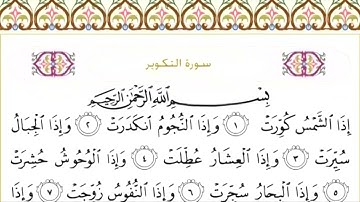 سورة التكوير
بِسْمِ اللَّهِ الرَّحْمَٰنِ الرَّحِيمِ
إِذَا الشَّمْسُ كُوِّرَتْ ١ وَإِذَا النُّجُومُ انكَدَرَتْ ٢ وَإِذَا الْجِبَالُ
سُيِّرَتْ ٣ وَإِذَا الْعِشَارُ عُطِّلَتْ ٤ وَإِذَا الْوُحُوشُ حُشِرَتْ
٥ وَإِذَا الْبِحَارُ سُجِّرَتْ ٦ وَإِذَا النُّفُوسُ زُوِّجَتْ ٧ وَإِذَا